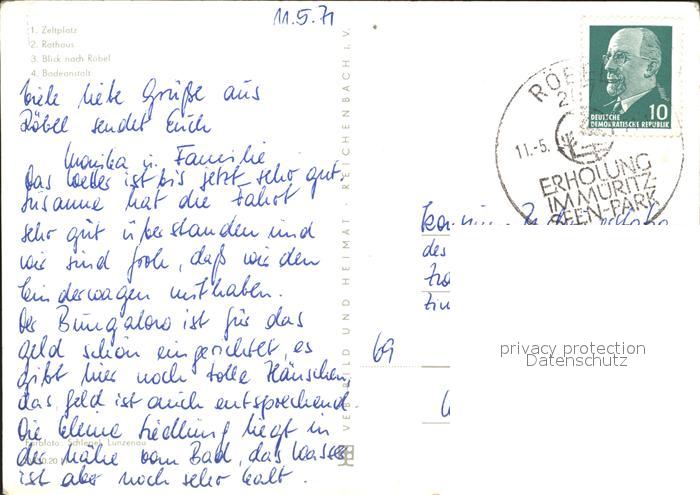 11.5.71
1. Zeltplatz
2. Rathaus
3. Blick nach Röbel
4. Badeanstalt
Viele liebe Grüße aus
Röbel sendet Euch
Monika u. Familie
Das Wetter ist bis jetzt sehr gut.
Susanne hat die Fahrt
sehr gut überstanden und
wir sind froh, daß wir den
Kinderwagen mithaben.
Der Bungalow ist für das
Geld schön eingerichtet, es
gibt hier noch tolle Häuschen,
das Geld ist auch entsprechend.
Die kleine Siedlung liegt in
der Nähe vom Bad, das Wasser
ist aber noch sehr kalt.
Farbfoto: Schlegel, Lunzenau
VERLAG BILD UND HEIMAT · REICHENBACH I. V.
RÖBEL
11.-5.
ERHOLUNG
IM MÜRITZ-
SEEN-PARK
10
DEUTSCHE
DEMOKRATISCHE REPUBLIK
des
69
privacy protection
Datenschutz